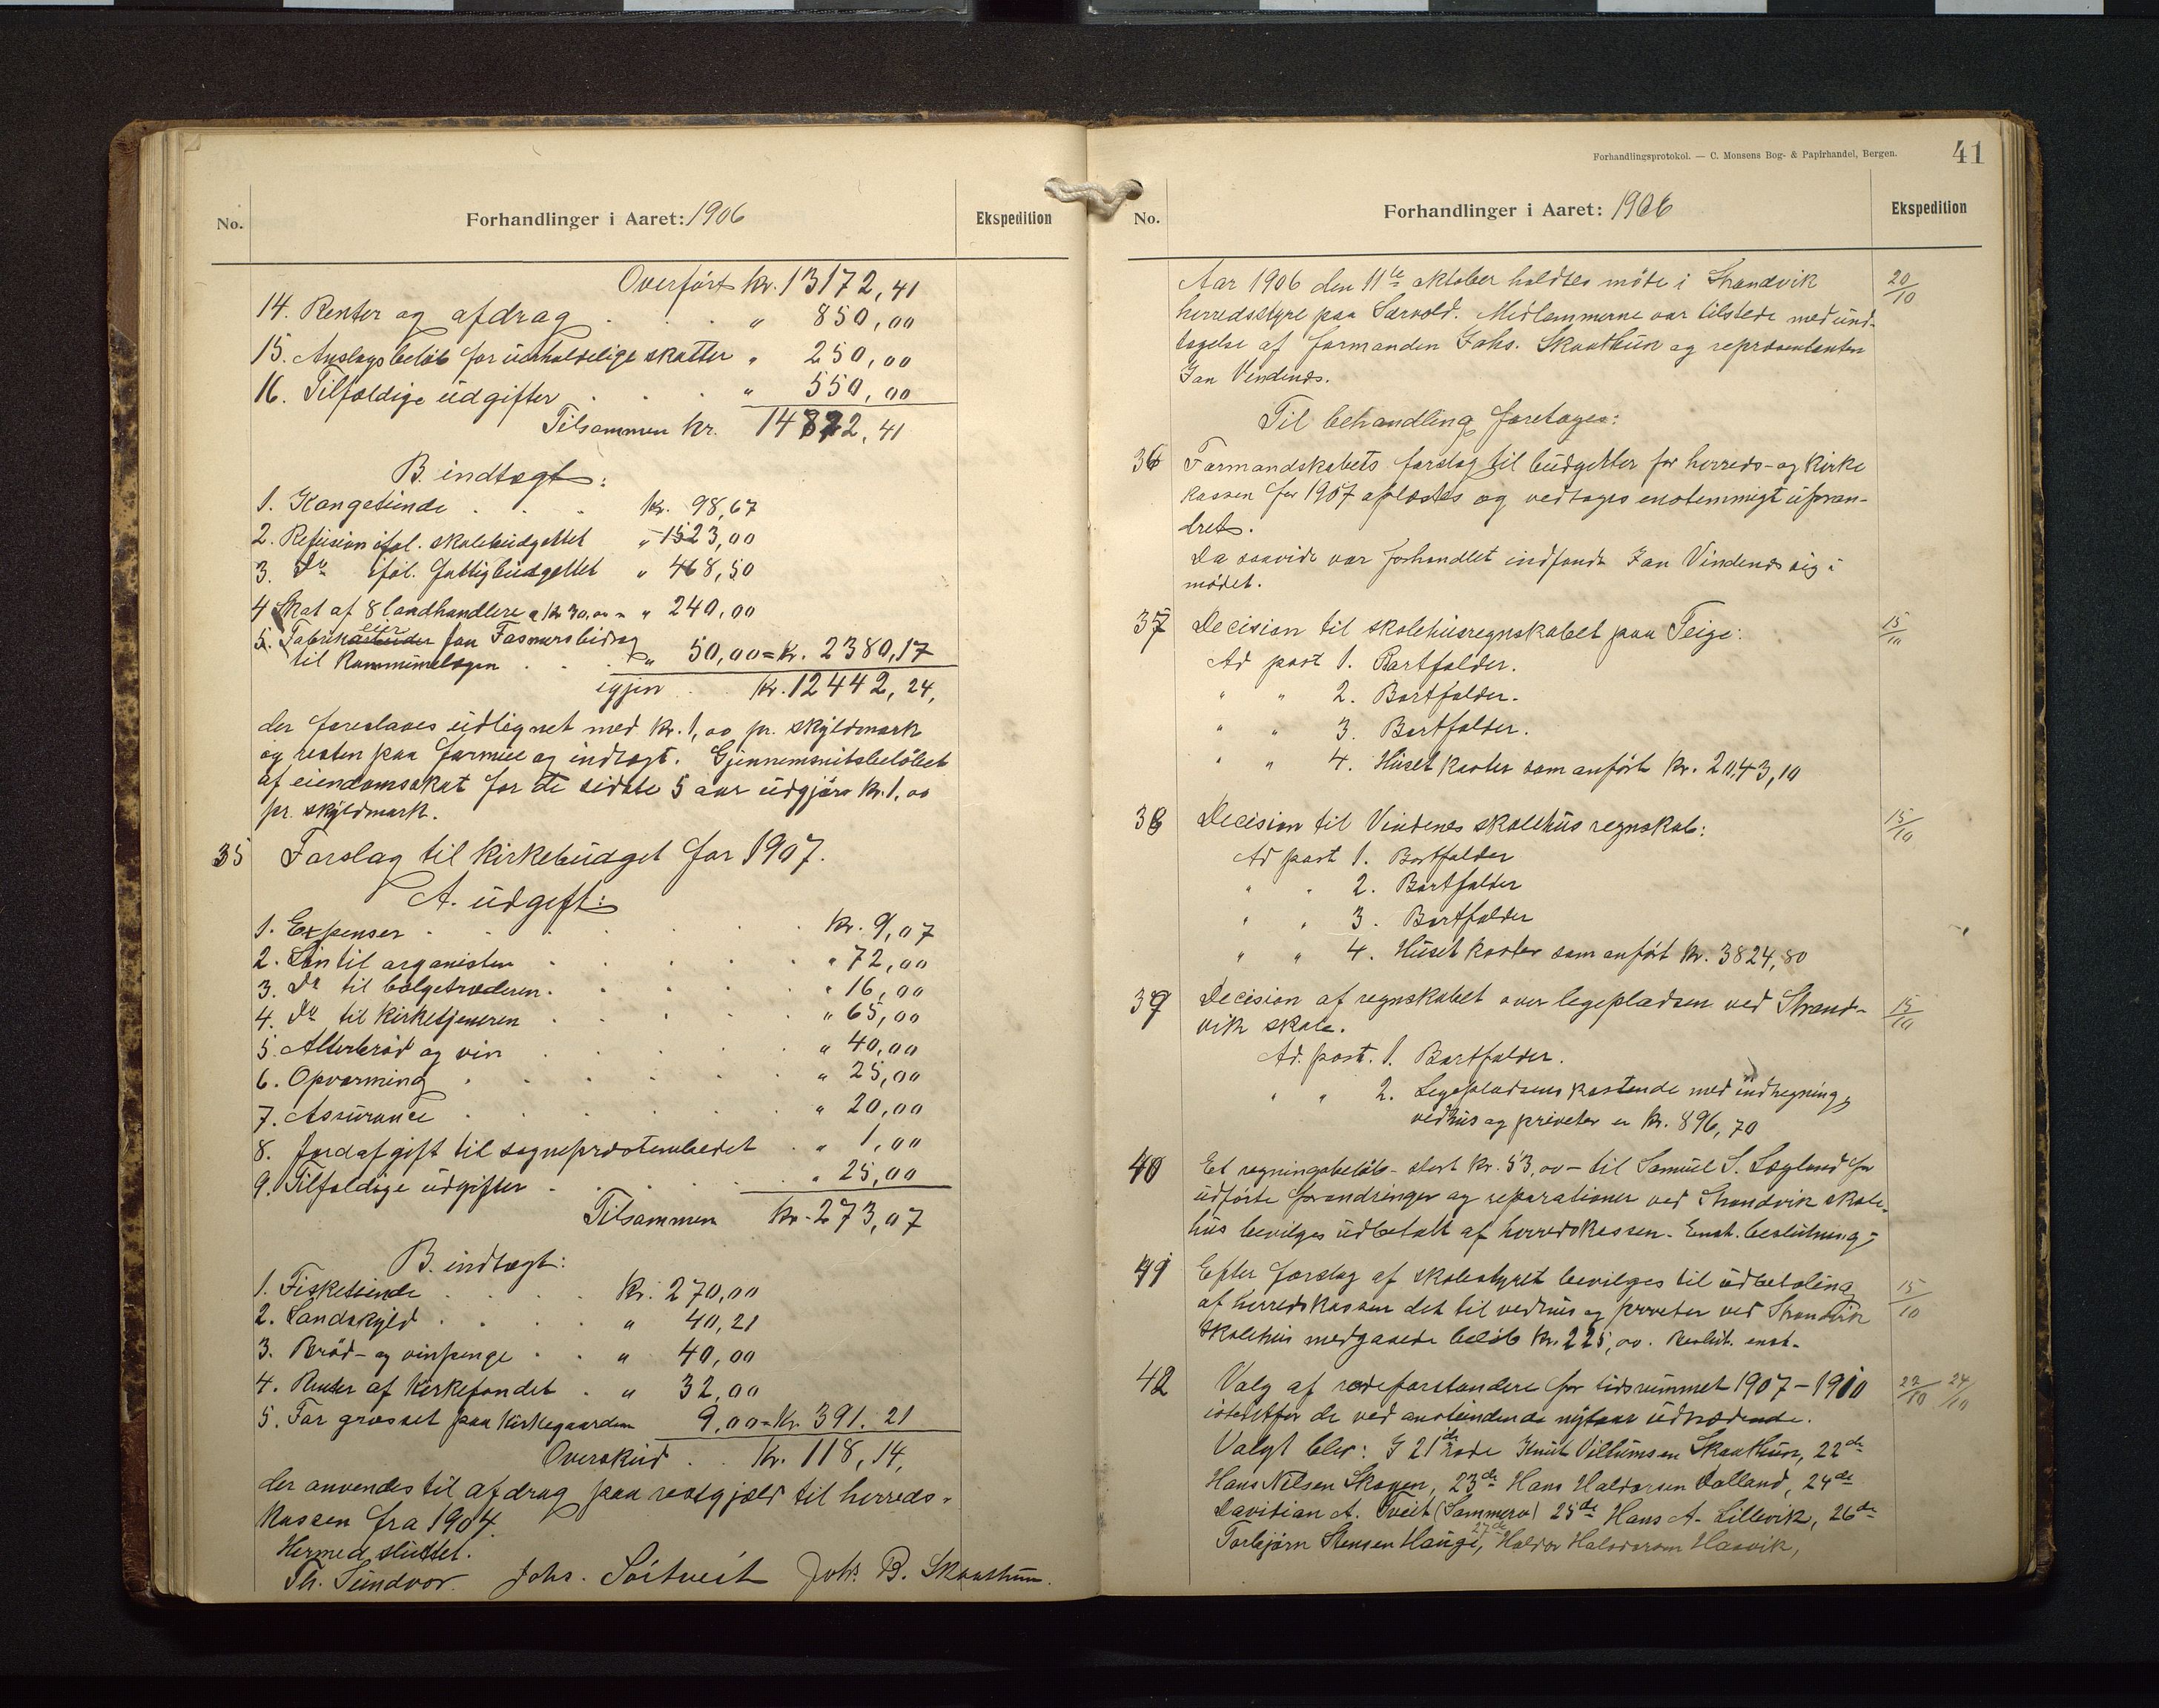 No.
Forhandlinger i Aaret: 1906
Ekspedition
Overført kr. 13172,41
14. Renter og afdrag . . . " 850,00
15. Anslagsbeløb for uerholdelige skatter " 250,00
16. Tilfældige udgifter . . . " 550,00
Tilsammen kr. 14822,41
B. indtægt:
1. Kongetiende . . . kr. 98,67
2. Refusion iføl. skolebudgettet " 1523,00
3. Do iføl. fattigbudgettet " 468,50
4 Skat af 8 landhandlere a kr 30,00 = " 240,00
5. Fabrikeier paa Fasmers bidrag
til kommunelægen . . . " 50,00 = kr. 2380,17
igjen . . kr. 12442,24,
der foreslaaes udlignet med kr. 1,00 pr. skyldmark
og resten paa formue og indtægt. Gjennemsnitsbeløbet
af eiendomsskat for de sidste 5 aar udgjør kr. 1,00
pr. skyldmark.
35 Forslag til kirkebudget for 1907.
A. udgift:
1. Expenser . . . kr. 9,07
2. Løn til organisten . . . " 72,00
3. Do til bælgetræderen . . . " 16,00
4. Do til kirketjeneren . . . " 65,00
5. Alterbrød og vin . . . " 40,00
6. Opvarming . . . " 25,00
7. Assurance . . . " 20,00
8. Jordafgift til sognepræstembedet . " 1,00
9. Tilfældige udgifter . . . " 25,00
Tilsammen kr. 273,07
B. indtægt:
1. Fisketiende . . . kr. 270,00
2. Landskyld . . . " 40,21
3. Brød- og vinpenge . . " 40,00
4. Renter af kirkefondet . " 32,00
5. For græsset paa kirkegaarden 9,00 = kr. 391.21
Overskud . . kr. 118,14,
der anvendes til afdrag paa restgjæld til herreds-
kassen fra 1904.
Hermed sluttet.
Th. Sundvor. Johs. Søltveit Johs B. Skaathun.
Forhandlingsprotokol. — C. Monsens Bog- & Papirhandel, Bergen.
41
No.
Forhandlinger i Aaret: 1906
Ekspedition
Aar 1906 den 11te oktober holdtes møde i Strandvik 20/10
herredsstyre paa Sævold. Medlemmerne var tilstede med und-
tagelse af formanden Johs. Skaathun og repræsentanten
Jan Vindenes.
Til behandling foretages:
36 Formandskabets forslag til budgetter for herreds- og kirke
kassen for 1907 oplæstes og vedtages enstemmigt uforan-
dret.
Da saavidt var forhandlet indfandt Jan Vindenes sig i
mødet.
37 Decision til skolehusregnskabet paa Teige: 15/10
Ad post 1. Bortfalder.
" " 2. Bortfalder.
" " 3. Bortfalder.
" " 4. Huset koster som anført kr. 2043,10
38 Decision til Vindenes skolehus regnskab: 15/10
Ad post 1. Bortfalder
" " 2. Bortfalder
" " 3. Bortfalder
" " 4. Huset koster som anført kr. 3824,80
39 Decision af regnskabet over legepladsen ved Strand- 15/10
vik skole.
Ad. post. 1. Bortfalder.
" " 2. Legepladsens kostende med indhegning,
vedhus og priveter er kr. 896,70
40 Et regningsbeløb - stort kr. 53,00 - til Samuel S. Løgland for
udførte forandringer og reparationer ved Strandvik skole-
hus bevilges udbetalt af herredskassen. Enst. beslutning.
41 Efter forslag af skolestyret bevilges til udbetaling 15/10
af herredskassen det til vedhus og priveter ved Strandvik
skolehus medgaaede beløb kr. 225,00. Beslut. enst.
42 Valg af rodeforstandere for tidsrummet 1907-1910 22/10 24/10
istedetfor de ved anstundende nytaar udtrædende.
Valgt blev: I 21de rode Knut Villumsen Skaathun, 22de
Hans Nilsen Skogen, 23de Hans Haldorsen Dalland, 24de
Davidian A. Tveit (Sammerv) 25de Hans A. Lillevik, 26de
Torbjørn Stensen Hauge, 27de Haldor Haldorsen Haavik,